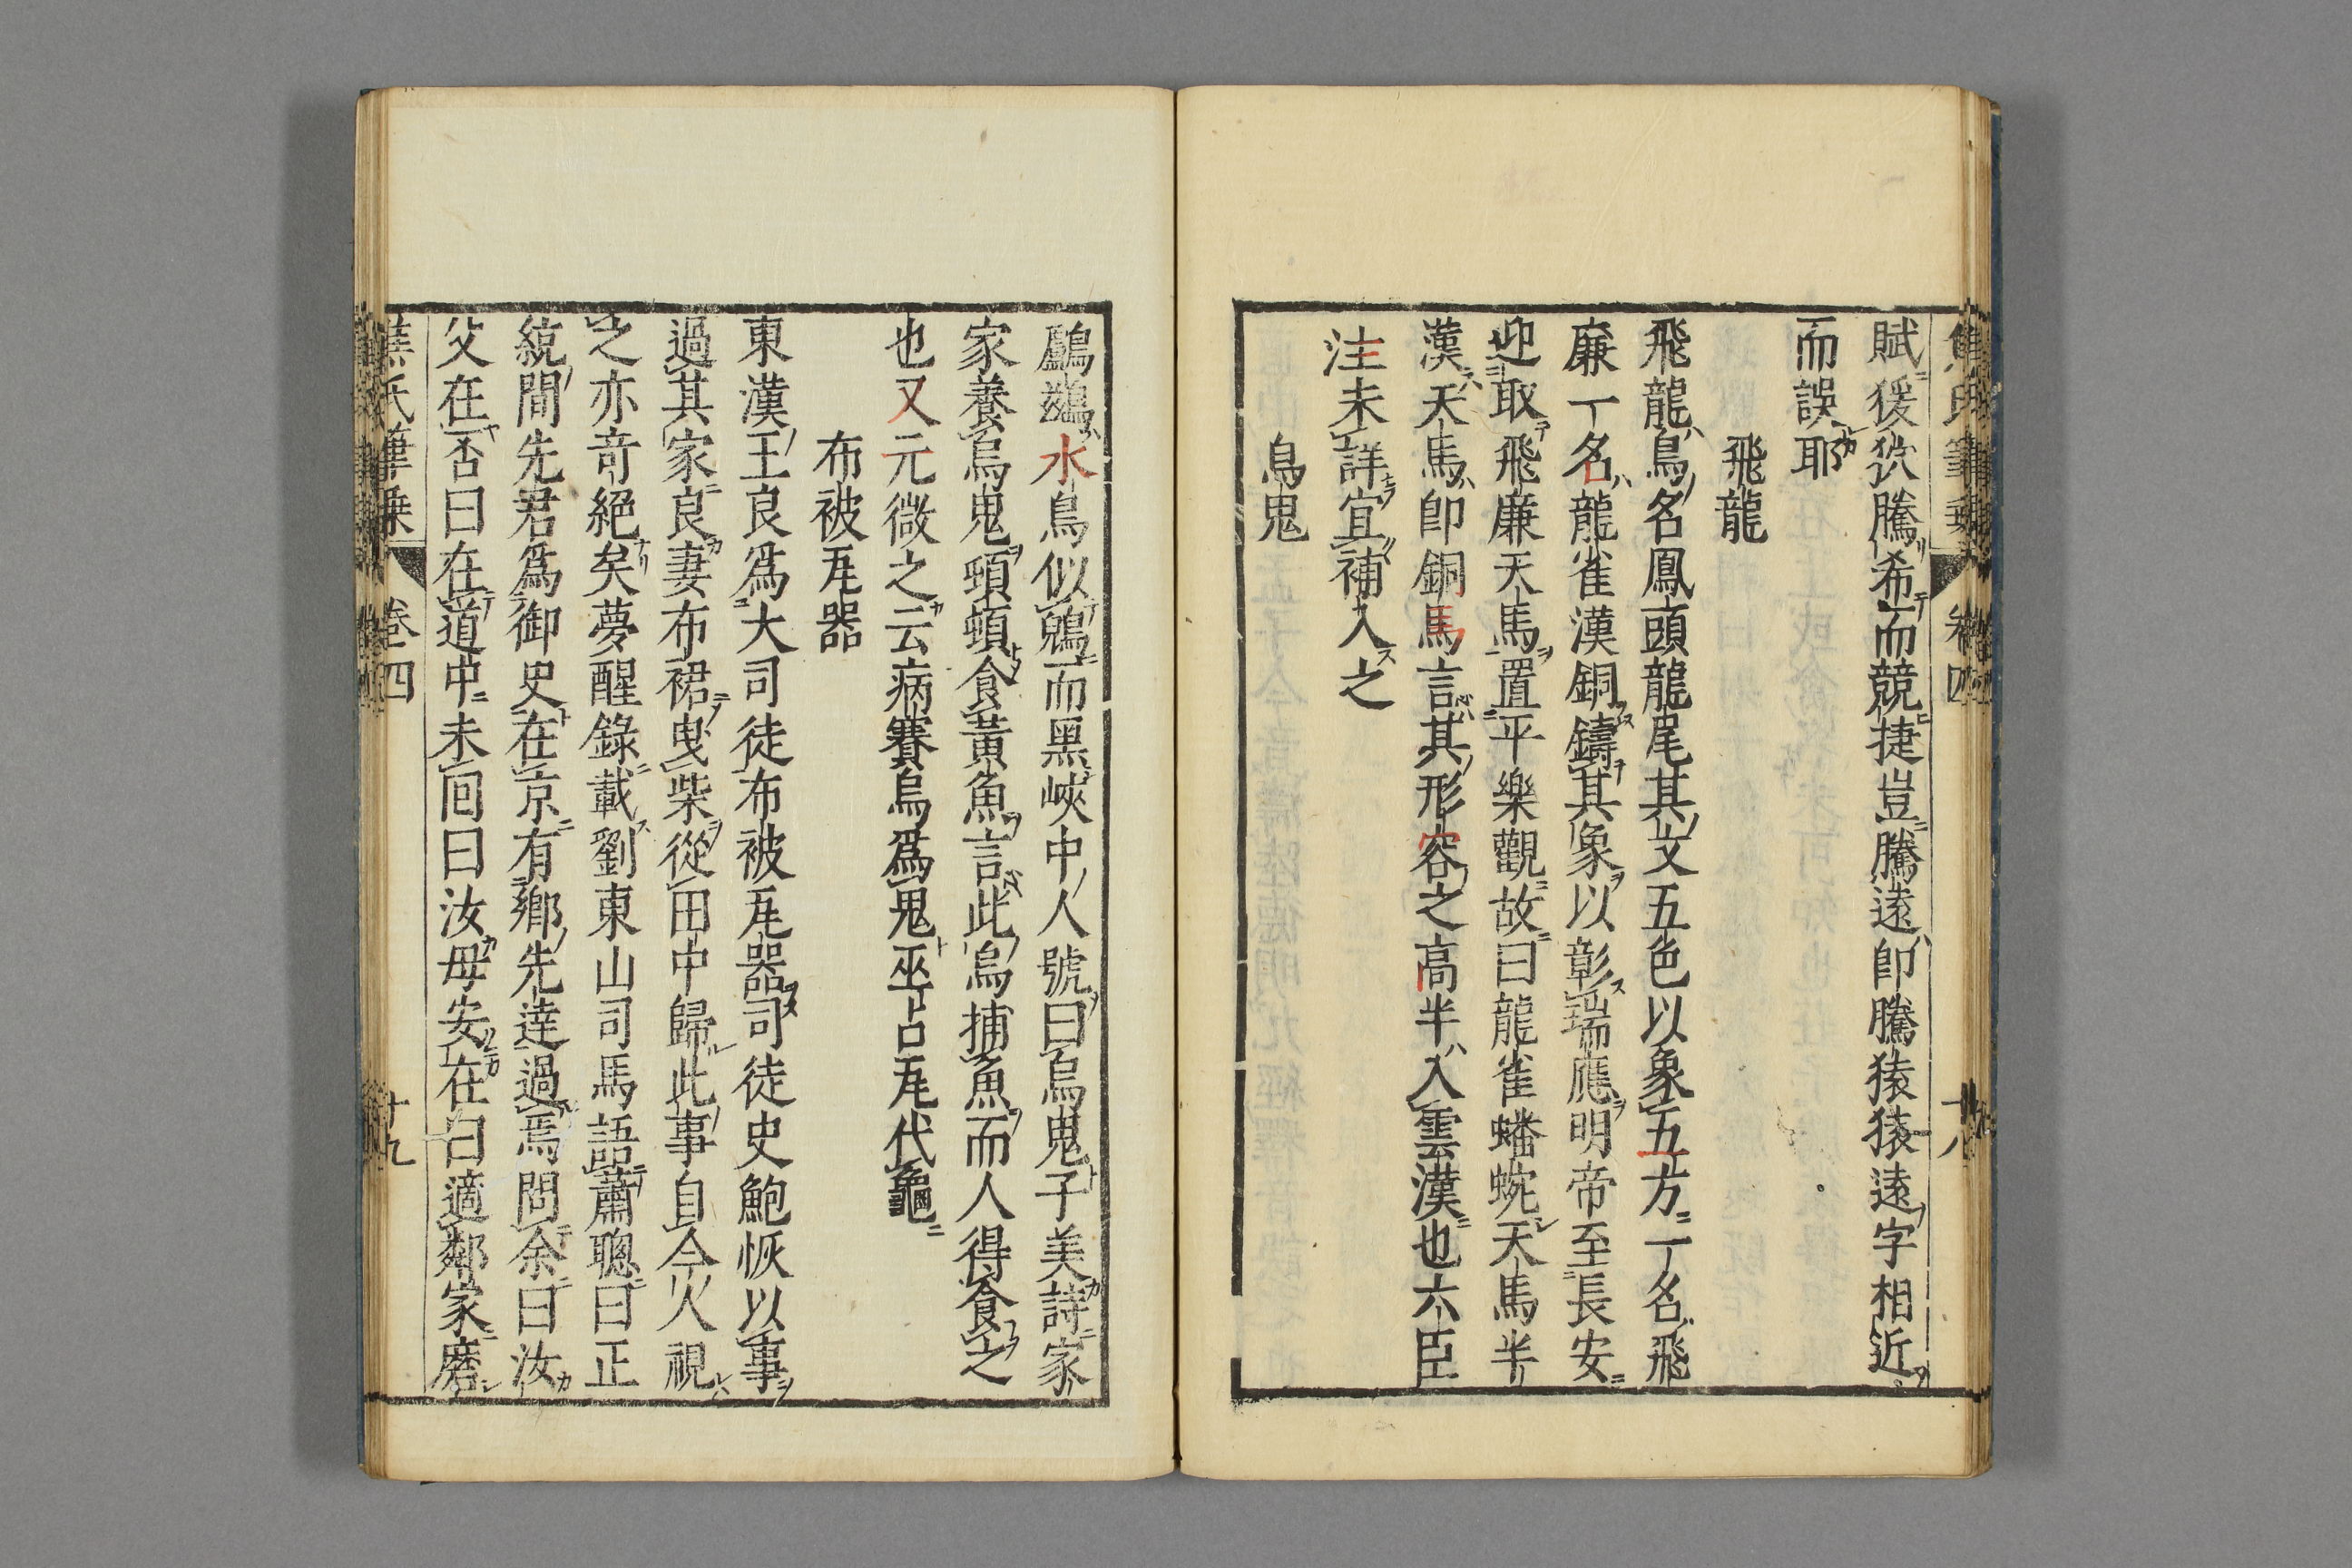 焦氏筆乗 卷四 十八
賦猨狖騰希而競捷豈騰遠卽騰猿猿遠字相近
而誤耶
飛龍
飛龍鳥名鳳頭龍尾其文五色以象五方一名飛
廉一名龍雀漢銅鑄其象以彰瑞應明帝至長安
迎取飛廉天馬置平樂觀故曰龍雀蟠蜿天馬半
漢天馬卽銅馬言其形容之高半入雲漢也六臣
注未詳宜補入之
烏鬼
鸕鷀水鳥似鶂而黑峽中人號曰烏鬼子美詩家
家養烏鬼頓頓食黃魚言此烏捕魚而人得食之
也又元微之云病賽烏爲鬼巫占瓦代龜
布被瓦器
東漢王良爲大司徒布被瓦器司徒史鮑恢以事
過其家良妻布裙曳柴從田中歸此事自今人視
之亦竒絕矣夢醒錄載劉東山司馬語蕭聰曰正
統間先君爲御史在京有鄉先達過焉問余曰汝
父在否曰在道中未囘曰汝母安在曰適鄰家磨
焦氏筆乗 卷四 十九